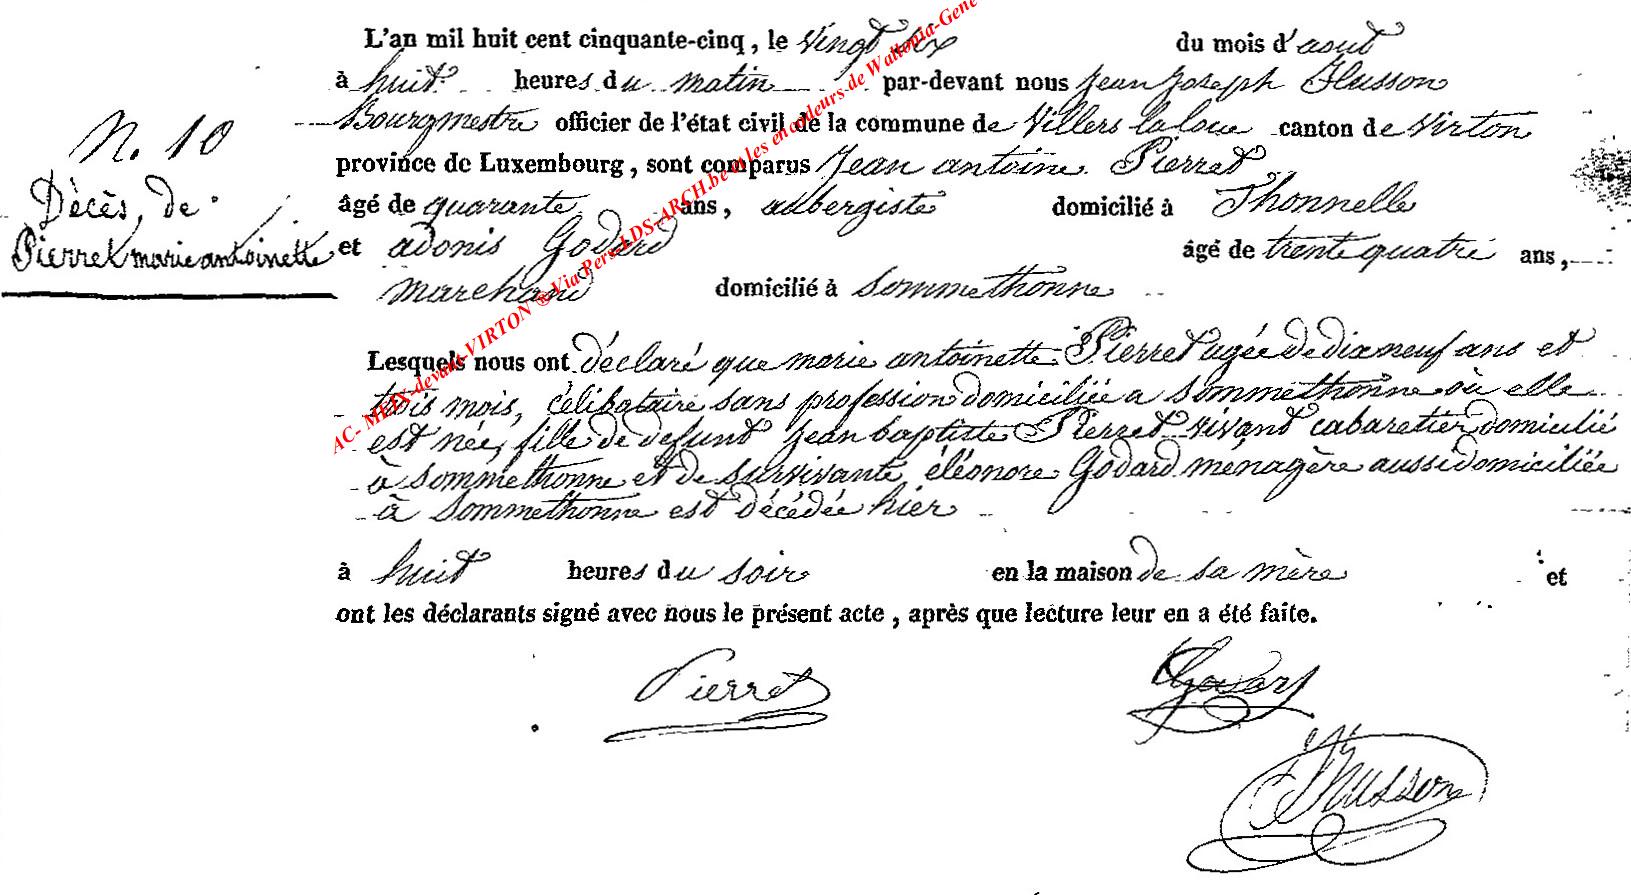 L'an mil huit cent cinquante-cinq, le vingt six du mois d'aout
à huit heures du matin par-devant nous Jean Joseph Husson
Bourgmestre officier de l'état civil de la commune de Villers la loue canton de Virton
province de Luxembourg, sont comparus Jean antoine Pierret
âgé de quarante ans, aubergiste domicilié à Thonnelle
et adonis Godard âgé de trente quatre ans,
marchand domicilié à Sommethonne
N. 10
Décès, de
Pierret marie antoinette
Lesquels nous ont déclaré que marie antoinette Pierret agée de dix neuf ans et
trois mois, célibataire sans profession domiciliée a Sommethonne où elle
est née, fille de defunt Jean baptiste Pierret vivant cabaretier domicilié
à Sommethonne et de survivante éléonore Godard ménagère aussi domiciliée
à Sommethonne est décédée hier
à huit heures du soir en la maison de sa mère et
ont les déclarants signé avec nous le présent acte, après que lecture leur en a été faite.
Pierret
Godard
Husson
AC- MEIX-devant-VIRTON ® Via Pers LDS-ARCH.be et les encodeurs de Wallonia-Gene